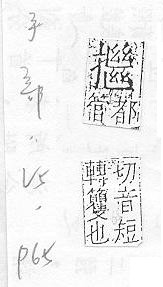 都管
切音短
轉籰也
手部. V5. p65